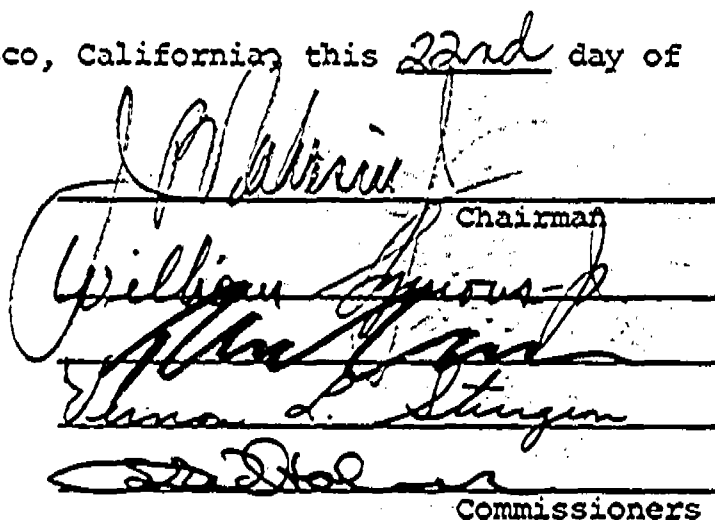 co, California, this 22nd day of
Chairman
William Symons Jr
Vernon L. Sturgeon
Commissioners